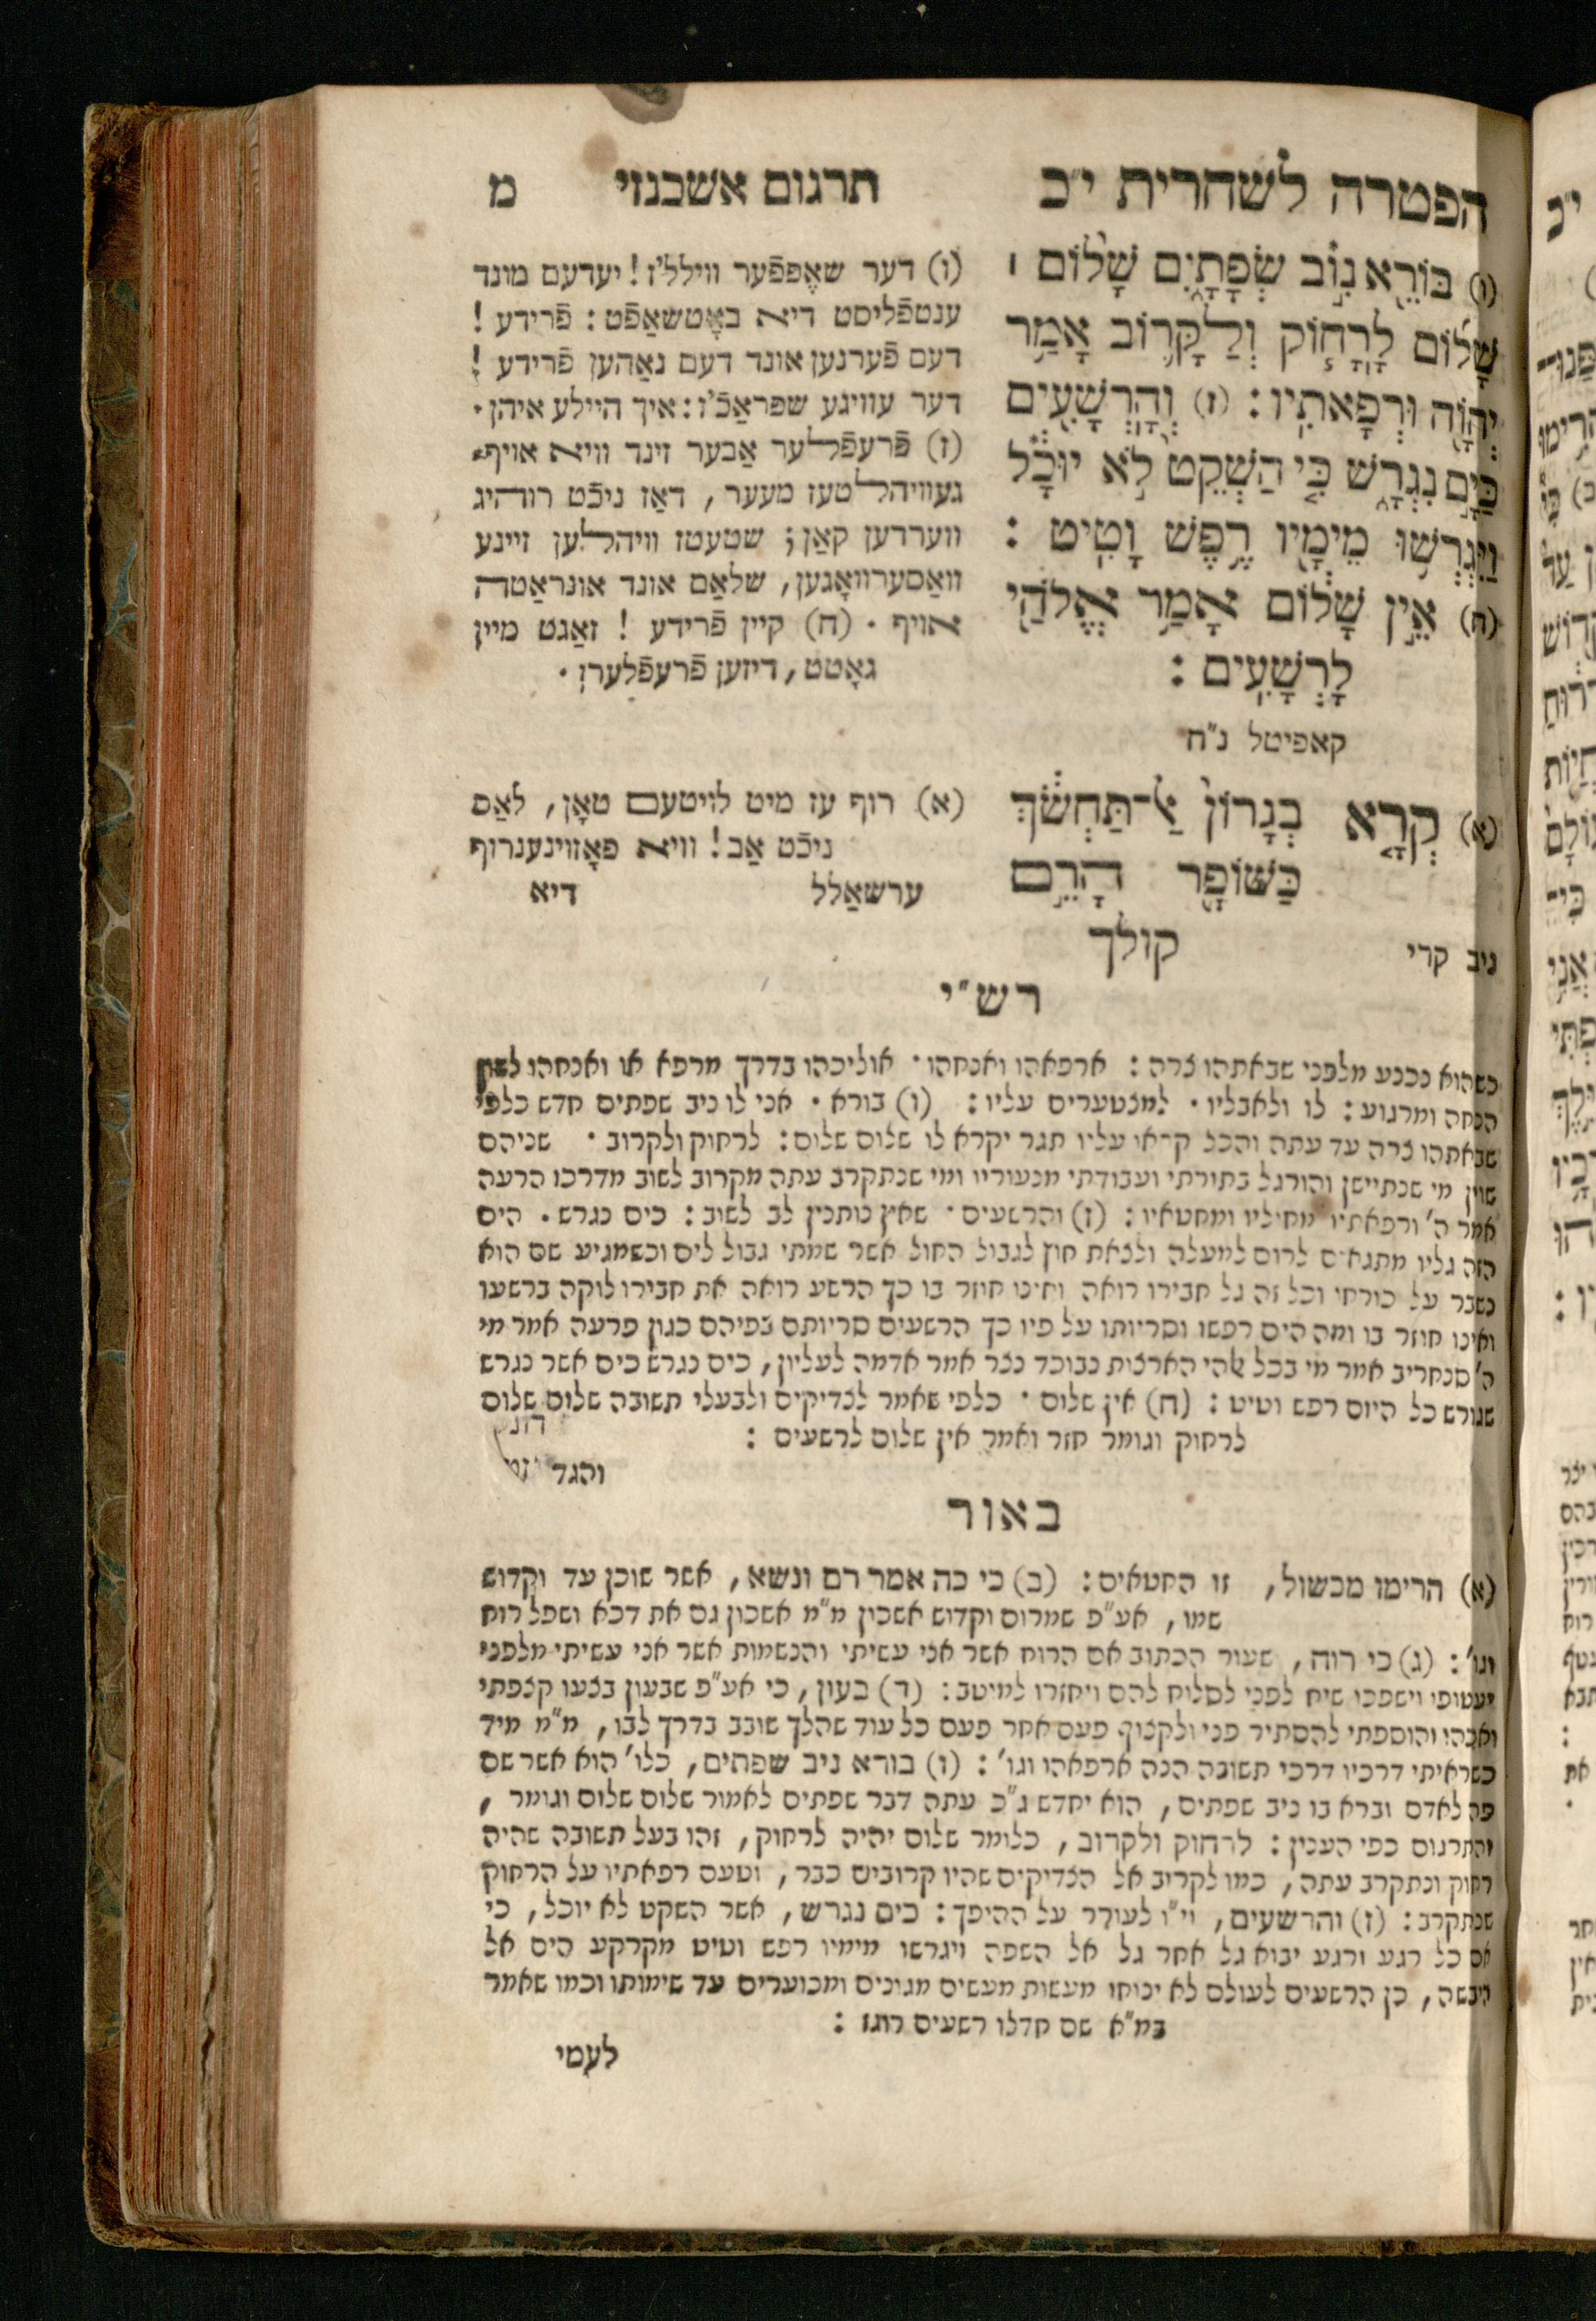 הפטרה לשחרית י״כ
תרגום אשכנזי
מ
(ו) בּוֹרֵא נוּב שְׂפָתָיִם שָׁלוֹם ׀
שָׁלוֹם לָרָחוֹק וְלַקָּרוֹב אָמַר
יְהוָה וּרְפָאתִיו : (ז) וְהָרְשָׁעִים
כַּיָּם נִגְרָשׁ כִּי הַשְׁקֵט לֹא יוּכָל
וַיִּגְרְשׁוּ מֵימָיו רֶפֶשׁ וָטִיט :
(ח) אֵין שָׁלוֹם אָמַר אֱלֹהַי
לָרְשָׁעִים :
קאפיטל נ״ח
(א) קְרָא בְגָרוֹן אַל־תַּחְשֹׂךְ
כַּשּׁוֹפָר הָרֵם
קולך
ניב קרי
(ו) דער שאָפּפֿער וויללֿ׳ז! יעדעם מונד
ענטפֿליסט דיא באָטשאַפֿט : פֿרידע !
דעם פֿערנען אונד דעם נאַהען פֿרידע !
דער עוויגע שפראַכֿ׳ז : איך היילע איהן ·
(ז) פֿרעפֿלער אַבער זינד וויא אויף־
געוויהלטעז מעער, דאַז ניכֿט רוהיג
ווערדען קאַן; שטעטז וויהלען זיינע
וואַסערוואָגען, שלאַם אונד אונראַטה
אויף · (ח) קיין פֿרידע ! זאַגט מיין
גאָטט, דיזען פֿרעפֿלערן ·
(א) רוף עז מיט לויטעם טאָן, לאַס
ניכֿט אַב! וויא פאָזוינענרוף
ערשאַלל דיא
רש״י
כשהוא נכנע מלפני שבאתהו צרה : ארפאהו ואנחהו · אוליכהו בדרך מרפא או ואנחהו לשון
הנחה ומרגוע : לו ולאבליו · למצטערים עליו : (ו) בורא · אני לו ניב שפתים חדש כלפי
שבאתהו צרה עד עתה והכל קראו עליו תגר יקרא לו שלום שלום : לרחוק ולקרוב · שניהם
שוין מי שנתיישן והורגל בתורתי ועבודתי מנעוריו ומי שנתקרב עתה מקרוב לשוב מדרכו הרעה
אמר ה׳ ורפאתיו מחוליו ומחטאיו : (ז) והרשעים · שאין נותנין לב לשוב : כים נגרש · הים
הזה גליו מתגאים לרום למעלה ולצאת חוץ לגבול החול אשר שמתי גבול לים וכשמגיע שם הוא
נשבר על כורחו וכל זה גל חבירו רואה ואינו חוזר בו כך הרשע רואה את חבירו לוקה ברשעו
ואינו חוזר בו ומה הים רפשו וסריותו על פיו כך הרשעים סריותם בפיהם כגון פרעה אמר מי
ה׳ סנחריב אמר מי בכל אלהי הארצות נבוכד נצר אמר אדמה לעליון, כים נגרש כים אשר נגרש
שגורש כל היום רפש וטיט : (ח) אין שלום · כלפי שאמר לצדיקים ולבעלי תשובה שלום שלום
לרחוק וגומר חזר ואמר אין שלום לרשעים :
והגד
באור
(א) הרימו מכשול, זו החטאים : (ב) כי כה אמר רם ונשא, אשר שוכן עד וקדוש
שמו, אע״פ שמרום וקדוש אשכון מ״מ אשכון גם את דכא ושפל רוח
וגו׳ : (ג) כי רוח, שעור הכתוב אם הרוח אשר אני עשיתי והנשמות אשר אני עשיתי מלפני
יעטופו וישפכו שיח לפני לסלוח להם ויחזרו למיטב : (ד) בעון, כי אע״פ שבעון בצעו קצפתי
ואכהו והוספתי להסתיר פני ולקצוף פעם אחר פעם כל עוד שהלך שובב בדרך לבו, מ״מ מיד
כשראיתי דרכיו דרכי תשובה הנה ארפאהו וגו׳ : (ו) בורא ניב שפתים, כלו׳ הוא אשר שם
פה לאדם וברא בו ניב שפתים, הוא יחדש ג״כ עתה דבר שפתים לאמור שלום שלום וגומר ,
והתרגום כפי הענין : לרחוק ולקרוב, כלומר שלום יהיה לרחוק, זהו בעל תשובה שהיה
רחוק ונתקרב עתה, כמו לקרוב אל הצדיקים שהיו קרובים כבר, וטעם רפאתיו על הרחוק
שנתקרב : (ז) והרשעים, וי״ו לעורר על ההיפך : כים נגרש, אשר השקט לא יוכל, כי
אם כל רגע ורגע יבוא גל אחר גל אל השפה ויגרשו מימיו רפש וטיט מקרקע הים אל
היבשה, כן הרשעים לעולם לא ינוחו מעשות מעשים מגונים ומכוערים עד שימותו וכמו שאמר
במ״א שם חדלו רשעים רוגז :
לעמי